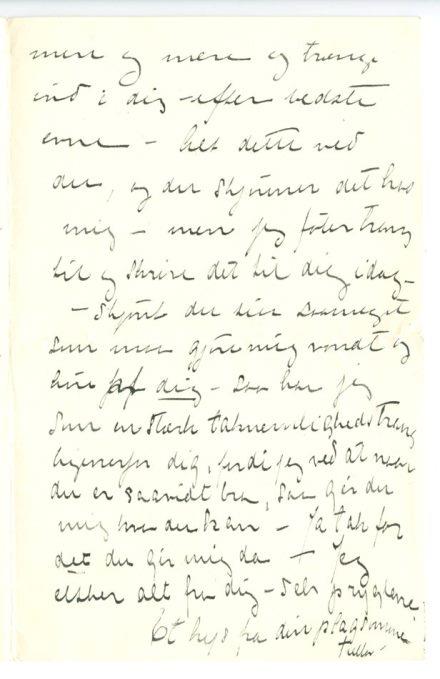 mere og mere og trænge
ind i dig – efter bedste
evne – Alt dette ved
du, og du skjønner det hos
mig – men jeg føler trang
til og skrive det til dig idag –
– Skjønt du sier saameget
som maa gjøre mig vondt og
af dig – saa har jeg
som en stærk taknemlighedstrang
ligeoverfor dig, fordi jeg ved at naar
du er saavidt bra, saa gir du
mig hva du kan – Ja tak for
det du gir mig da – Jeg
elsker alt fra dig – selv pryglene
Et kys fra din plagsomme